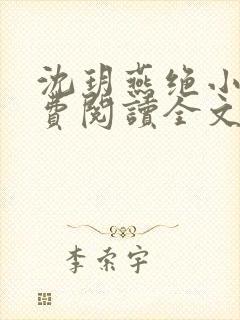 沈玥燕绝小
費閱讀全文
李索宇